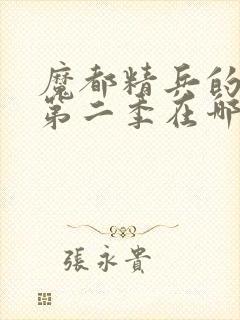 魔都精兵的
第二季在哪
張永貴